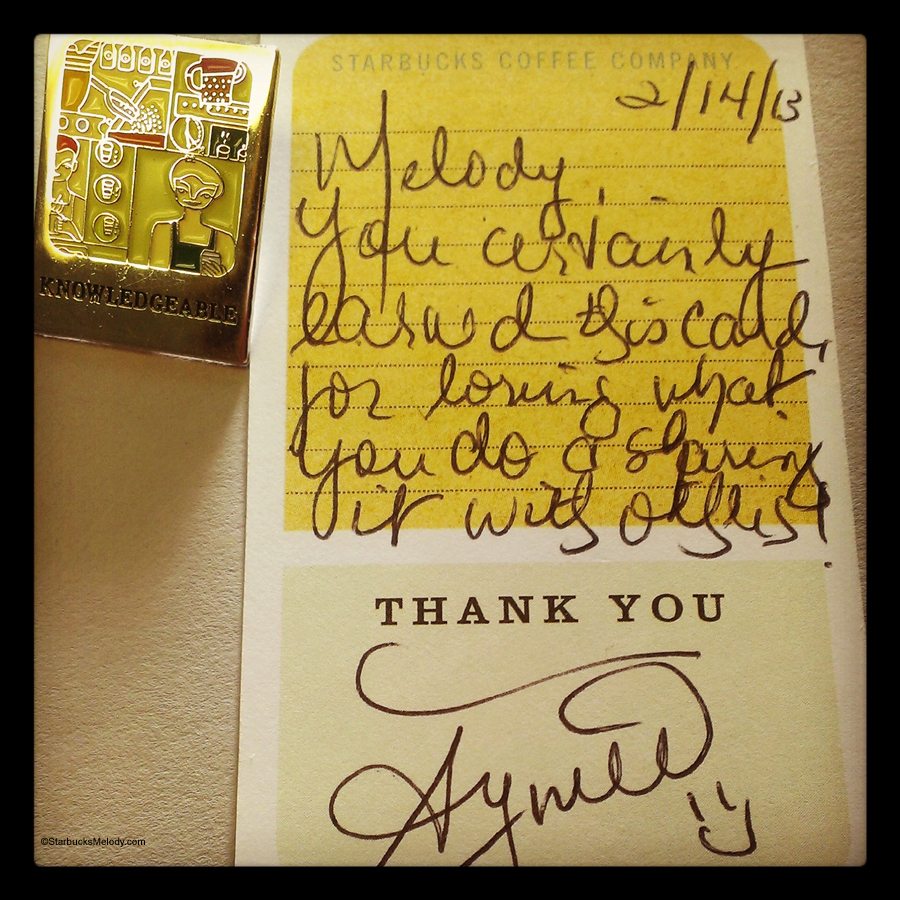 STARBUCKS COFFEE COMPANY
2/14/13
Melody,
You certainly
earned this card,
for loving what
you do & sharing
it with others!
THANK YOU
Aymee
KNOWLEDGEABLE
©StarbucksMelody.com